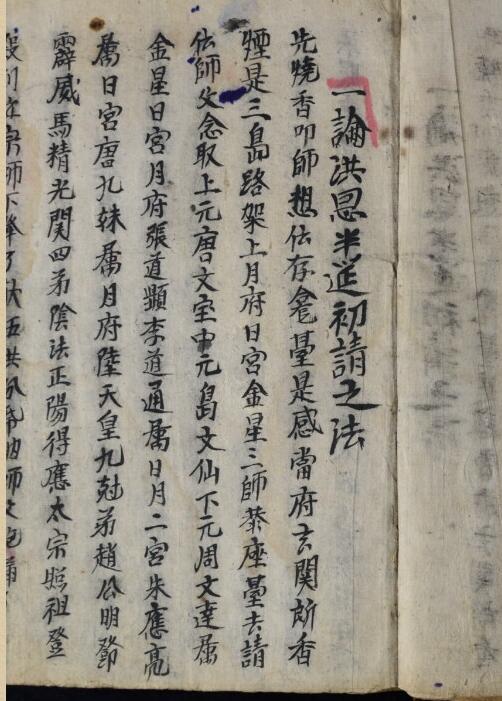 一論洪恩半筵初請之法
先燒香叩師想伝存龛臺是感當府玄関所香
煙是三島路架上月府日宮金星三師蓁座臺去請
伝師父念取上元唐文宝中元島文仙下元周文達属
金星日宮月府張道顯李道通属日月二宮朱應亮
属日宮唐九妹属月府陸天皇九娃弟趙公明鄧
霹威馬精光関四弟陰法正陽得應太宗照祖登